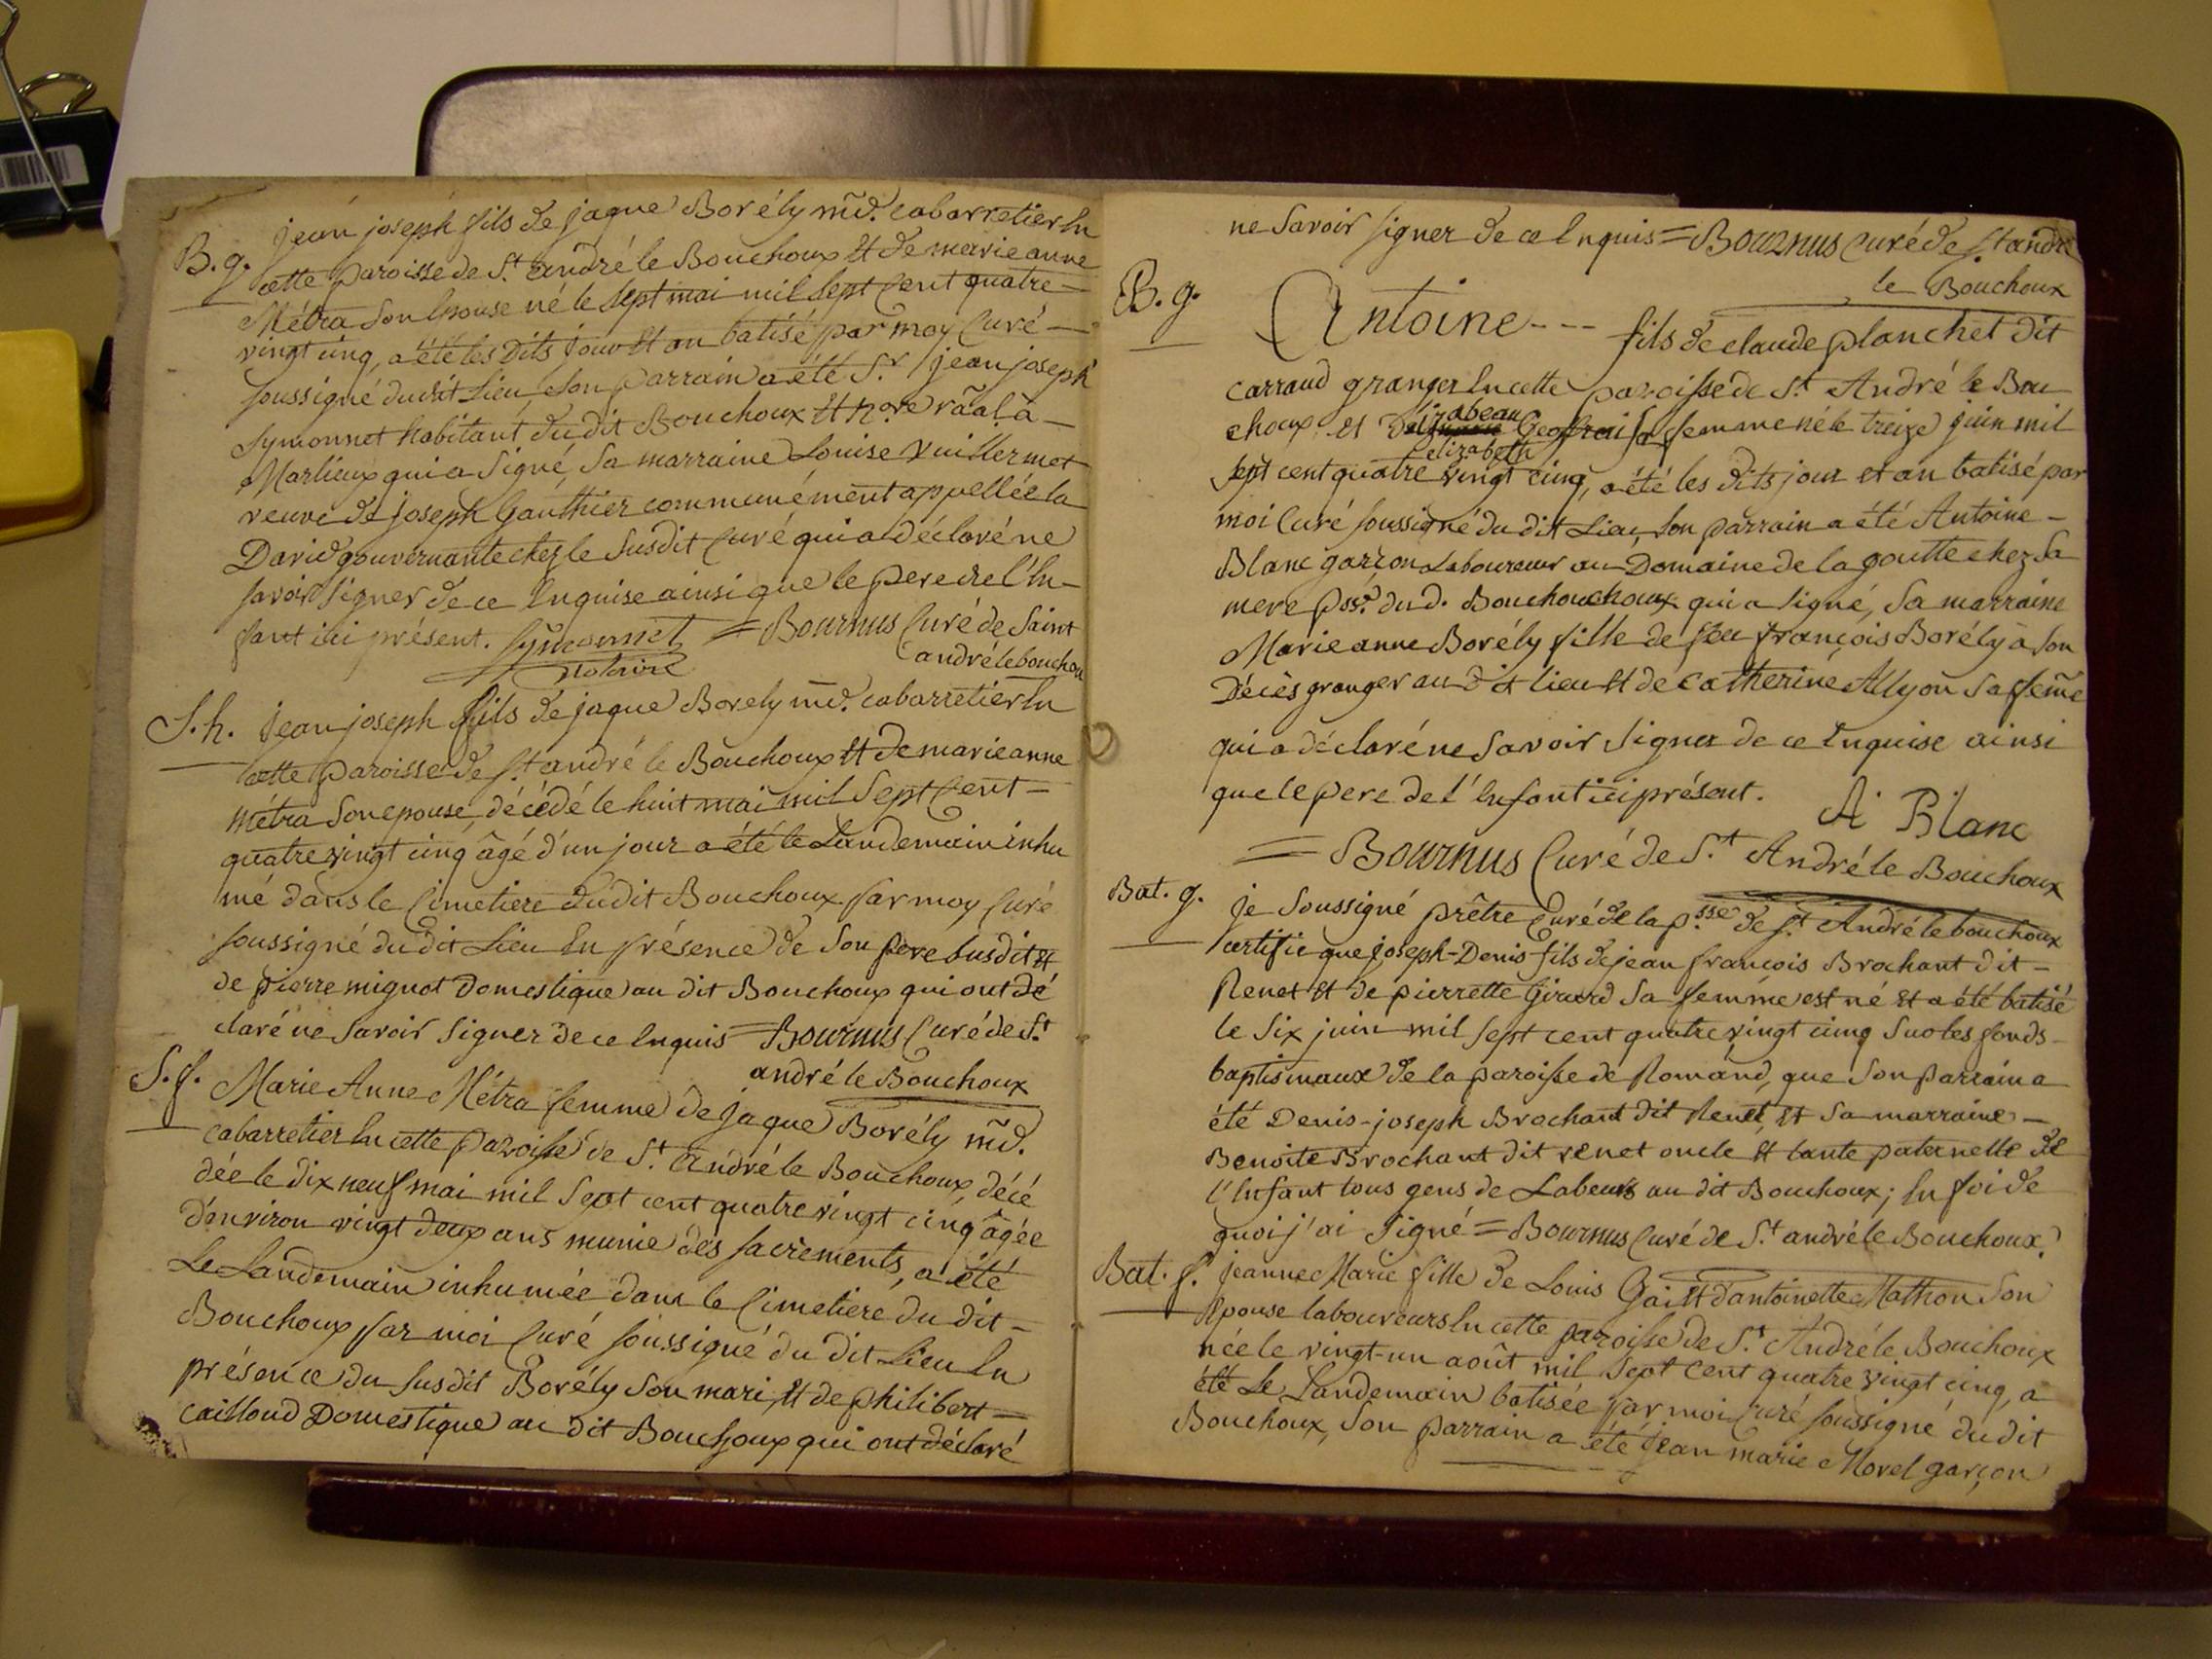 B. g. jean joseph fils de jaque Borély md. cabarretier en
cette paroisse de St. andré le Bouchoux et de marie anne
Métra son epouse né le sept mai mil sept cent quatre-
vingt cinq, a été les dits jour et an batisé par moy Curé -
soussigné dudit Lieu Son parrain a été Sr. jean joseph
Symonnet habitant du dit Bouchoux et nore. raal. a -
Marlieux qui a signé, Sa marraine Louise Vuillermet
veuve de joseph Gauthier communément appellée la
David gouvernante chez le Susdit Curé qui a déclaré ne
savoir signer de ce Enquise ainsi que le pere de l'En-
fant ici présent. Symonnet = Bournus Curé de Saint
notaire andré le bouchou
S. h. jean joseph fils de jaque Borely md. cabarretier en
cette paroisse de St andré le Bouchoux et de marie anne
métra Son epouse, décédé le huit mai mil Sept Cent -
quatre vingt cinq âgé d'un jour a été le Landemain inhu
mé dans le Cimetiere dudit Bouchoux par moy Curé
soussigné du dit Lieu En présence de Son pere susdit et
de pierre mignot Domestique au dit Bouchoux qui ont dé
claré ne Savoir Signer de ce Enquis = Bournus Curé de St.
andré le Bouchoux
S. f. Marie Anne Métra femme de jaque Borély md.
cabarretier En cette paroisse de St. andré le Bouchoux, décé
dée le dix neuf mai mil Sept cent quatre vingt cinq âgée
d'environ vingt deux ans munie des sacrements, a été
Le Landemain inhumée dans le Cimetiere du dit -
Bouchoux par moi Curé soussigné du dit Lieu En
présence du susdit Borély Son mari, et de philibert -
cailloud Domestique au dit Bouchoux qui ont déclaré
ne Savoir signer de ce Enquis = Bournus Curé de St andré
le Bouchoux
B. g. Antoine --- fils de claude planchet dit
carraud granger En cette paroisse de St. André le Bou
choux et d'elizabeau Geoffrai sa femme né le treize juin mil
elizabeth
sept cent quatre vingt cinq, a été les dits jour et an batisé par
moi Curé soussigné du dit Lieu, Son parrain a été Antoine -
Blanc garçon Laboureur au Domaine de la goutte chez Sa
mere psse. du d. Bouchouchoux qui a signé, Sa marraine
Marie anne Borély fille de feu françois Borély à Son
Décès granger au dit lieu et de Catherine Allyon sa feme
qui a déclaré ne Savoir Signer de ce Enquise ainsi
que le pere de l'Enfant ici présent. A Blanc
= Bournus Curé de S.t André le Bouchoux
Bat. g. je Soussigné prêtre Curé de la psse. de St. André le bouchoux
certifie que joseph-Denis fils de jean francois Brochant dit -
Renet et de pierrette Girard Sa femme est né et a été batisé
le Six juin mil sept cent quatre vingt cinq Sur les fonds -
baptismaux de la paroisse de Romand, que Son parrain a
été Denis-joseph Brochant dit Renet, et Sa marraine -
Benoite Brochant dit renet oncle et tante paternelle de
l'Enfant tous gens de Labeurs au dit Bouchoux; En foi de
quoi j'ai signé = Bournus Curé de S.t andré le Bouchoux.
Bat. f. jeanne Marie fille de Louis Gai et d'antoinette Mathon Son
Epouse laboureurs En cette paroisse de St. André le Bouchoux
née le vingt-un août mil Sept Cent quatre vingt cinq, a
été Le Landemain batisée par moi Curé soussigné du dit
Bouchoux, Son parrain a été jean marie Morel garçon